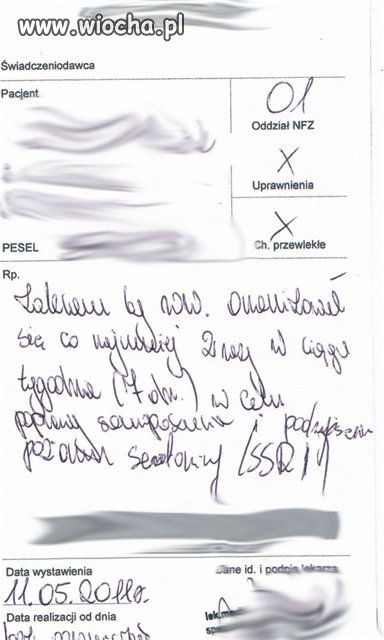 www.wiocha.pl
Świadczeniodawca
Pacjent
01
Oddział NFZ
X
Uprawnienia
X
PESEL
Ch. przewlekłe
Rp.
Zalecam by ww. onanizował
się co najmniej 2 razy w ciągu
tygodnia (7 dn.) w celu
poprawy samopoczucia i podwyższenia
poziomu serotoniny (SSRI!)
Data wystawienia
Dane id. i podpis lekarza
11.05.2011r.
Data realizacji od dnia
lek.me